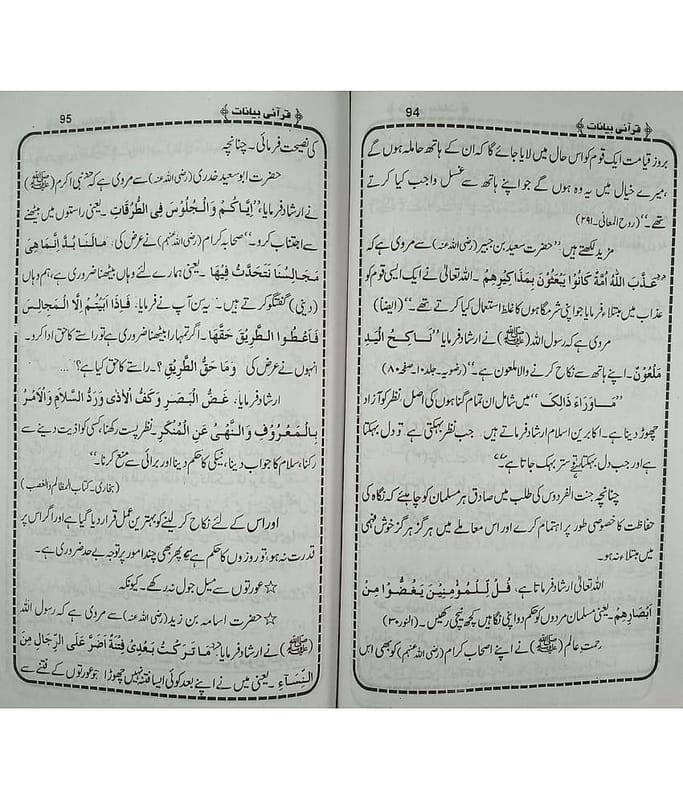 94
﴿قرآنی بیانات﴾
بروز قیامت ایک قوم کو اس حال میں لایا جائے گا کہ ان کے ہاتھ حاملہ ہوں گے
،میرے خیال میں یہ وہ ہوں گے جو اپنے ہاتھ سے غسل واجب کیا کرتے
تھے۔‘‘(روح المعانی۔۲۹۱)
مزید لکھتے ہیں’’حضرت سعید بن جبیر (رضی اللہ عنہ) سے مروی ہے کہ
’’عَذَّبَ اللّٰهُ اُمَّةً كَانُوْا يَعْبَثُوْنَ بِمَذَاكِيْرِهِمْ ۔اللہ تعالٰی نے ایک ایسی قوم کو
عذاب میں مبتلاء فرمایا جو اپنی شرمگاہوں کا غلط استعمال کیا کرتے تھے۔‘‘(ایضا)
مروی ہے کہ رسول اللہ (ﷺ) نے ارشاد فرمایا’’نَاكِحُ الْيَدِ
مَلْعُوْنٌ۔اپنے ہاتھ سے نکاح کرنے والا ملعون ہے۔‘‘(رضویہ۔جلد۱۰۔صفحہ۸۰)
’’مَاوَرَاءَ ذَالِكَ‘‘ میں شامل ان تمام گناہوں کی اصل نظر کو آزاد
چھوڑ دینا ہے۔اکابرین اسلام ارشاد فرماتے ہیں جب نظر بہکتی ہے تو دل بہکتا
ہے اور جب دل بہکتا ہے تو ستر بہک جاتا ہے۔‘‘
چنانچہ جنت الفردوس کی طلب میں صادق ہر مسلمان کو چاہیئے کہ نگاہ کی
حفاظت کا خصوصی طور پر اہتمام کرے اور اس معاملے میں ہرگز ہرگز خوش فہمی
میں مبتلاء نہ ہو۔
اللہ تعالٰی ارشاد فرماتا ہے، قُلْ لِّلْمُؤْمِنِيْنَ يَغُضُّوْا مِنْ
اَبْصَارِهِمْ ۔یعنی مسلمان مردوں کو حکم دو اپنی نگاہیں کچھ نیچی رکھیں۔(النور۔۳۰)
رحمت عالم (ﷺ) نے اپنے اصحاب کرام (رضی اللہ عنہم) کو بھی اس
95
﴿قرآنی بیانات﴾
کی نصیحت فرمائی۔چنانچہ
حضرت ابو سعید خدری (رضی اللہ عنہ) سے مروی ہے کہ نبی اکرم (ﷺ)
نے ارشاد فرمایا،’’اِيَّاكُمْ وَالْجُلُوْسَ فِى الطُّرُقَاتِ ۔یعنی راستوں میں بیٹھنے
سے اجتناب کرو۔‘‘صحابہ کرام (رضی اللہ عنہم) نے عرض کی، مَالَنَا بُدٌّ اِنَّمَا هِىَ
مَجَالِسُنَا نَتَحَدَّثُ فِيْهَا ۔یعنی ہمارے لئے وہاں بیٹھنا ضروری ہے،ہم وہاں
(دینی) گفتگو کرتے ہیں۔یہ سن آپ نے فرمایا، فَاِذَا اَبَيْتُمْ اِلَّا الْمَجَالِسَ
فَاَعْطُوا الطَّرِيْقَ حَقَّهَا ۔اگر تمہارا بیٹھنا ضروری ہے تو راستے کا حق ادا کرو۔
انہوں نے عرض کی وَمَا حَقُّ الطَّرِيْقِ ؟۔راستے کا حق کیا ہے؟...
ارشاد فرمایا، غَضُّ الْبَصَرِ وَكَفُّ الْاَذٰى وَرَدُّ السَّلَامِ وَالْاَمْرُ
بِالْمَعْرُوْفِ وَالنَّهْىُ عَنِ الْمُنْكَرِ ۔نظر پست رکھنا،کسی کو اذیت دینے سے
رکنا،سلام کا جواب دینا،نیکی کا حکم دینا اور برائی سے منع کرنا۔‘‘
(بخاری۔کتاب المظالم والغصب)
اور اس کے لئے نکاح کر لینے کو بہترین عمل قرار دیا گیا ہے اور اگر اس پر
قدرت نہ ہو،تو روزوں کا حکم ہے پھر بھی چند امور پر توجہ بے حد ضروری ہے۔
☆عورتوں سے میل جول نہ رکھے۔کیونکہ
☆حضرت اسامہ بن زید (رضی اللہ عنہ) سے مروی ہے کہ رسول اللہ
(ﷺ) نے ارشاد فرمایا’’مَا تَرَكْتُ بَعْدِىْ فِتْنَةً اَضَرَّ عَلَى الرِّجَالِ مِنَ
النِّسَآءِ ۔یعنی میں نے اپنے بعد کوئی ایسا فتنہ نہیں چھوڑا جو عورتوں کے فتنے سے